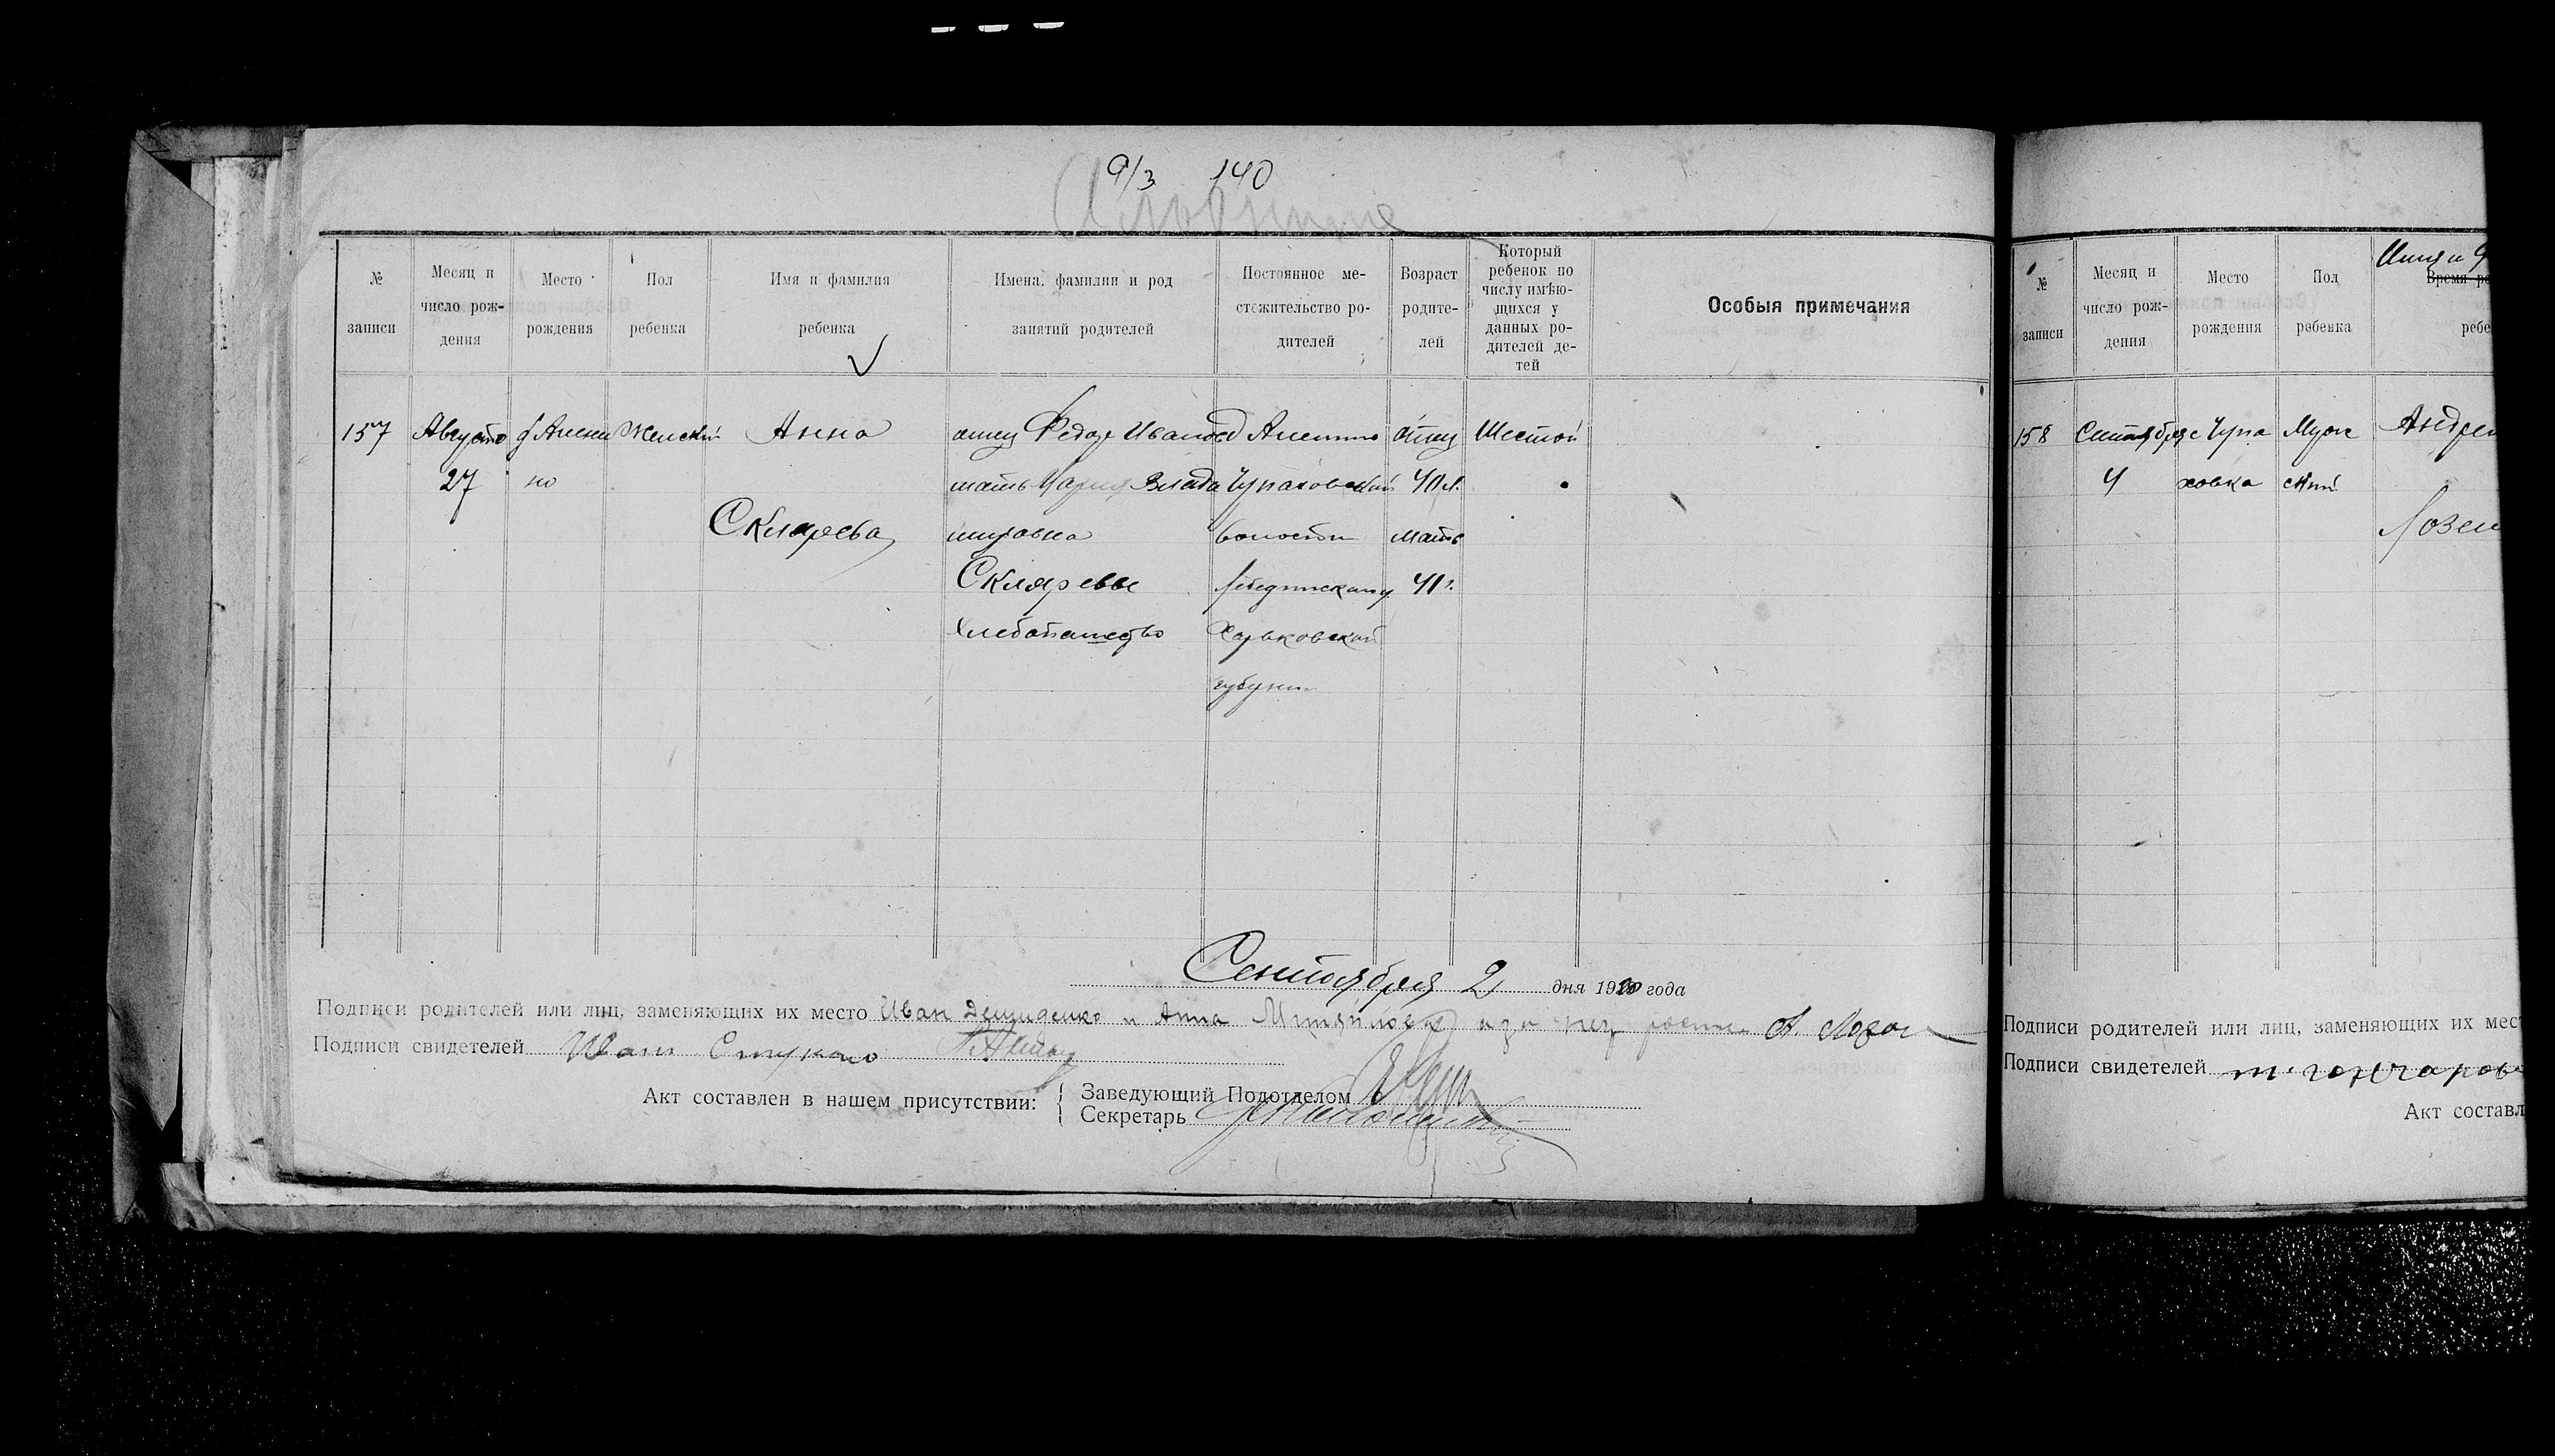 9/3 140
№ записи
Месяц и число рождения
Место рождения
Пол ребенка
Имя и фамилия ребенка
Имена, фамилии и род занятий родителей
Постоянное местожительство родителей
Возраст родителей
Который ребенок по числу имѣющихся у данных родителей детей
Особыя примечания
157 Августа Женский Анна отец Федор Иванов отец Шестой
27 но мать Мария Влади Чупаховской 40 л.
Склярева мировна волости мать
Скляревы Лебединскаго 41 г.
Хлебопашество Харьковской
губернии
Сентября 2 дня 1920 года
Подписи родителей или лиц, заменяющих их место Иван Демиденко и Анна
Подписи свидетелей Иван
Акт составлен в нашем присутствии:
Заведующий Подотделом
Секретарь
№ записи
Месяц и число рождения
Место рождения
Пол ребенка
Имя и
Время ро
ребе
158 Сентября с Чупа Муж Андрей
4 ховка ский
Лозен
Подписи родителей или лиц, заменяющих их мест
Подписи свидетелей т. гончаров
Акт составл